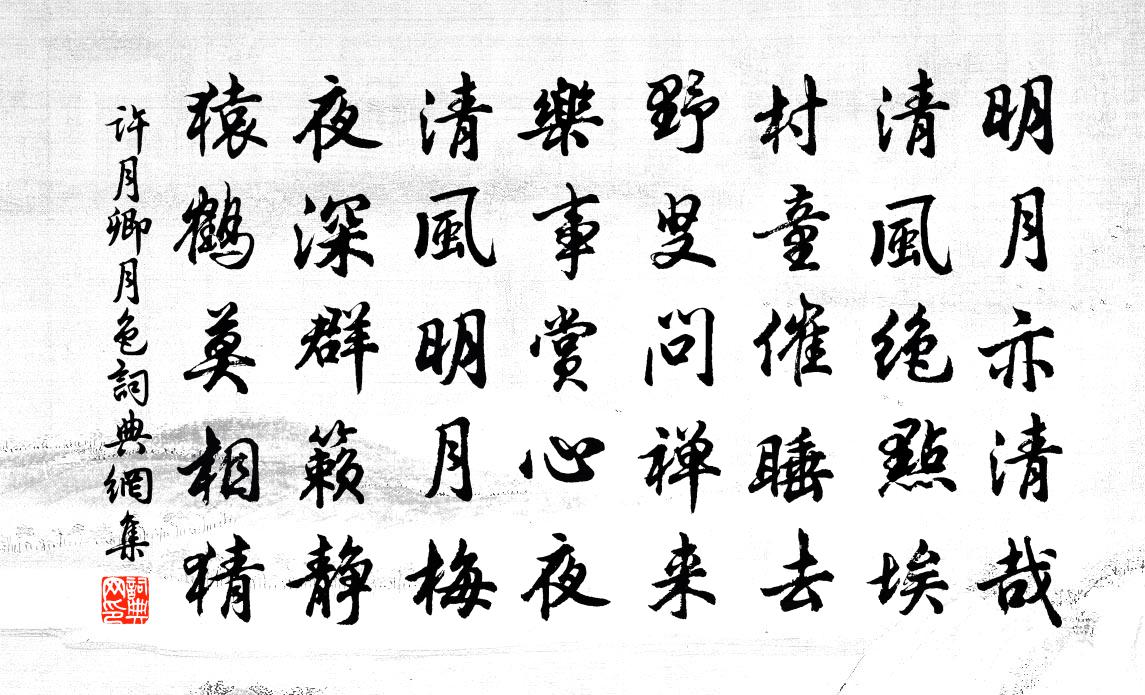 明月亦清哉
清風絶點埃
村童催睡去
野叟問禅来
樂事賞心夜
清風明月梅
夜深群籟静
猿鶴莫相猜
許月卿月色詞典網集
詞典网印